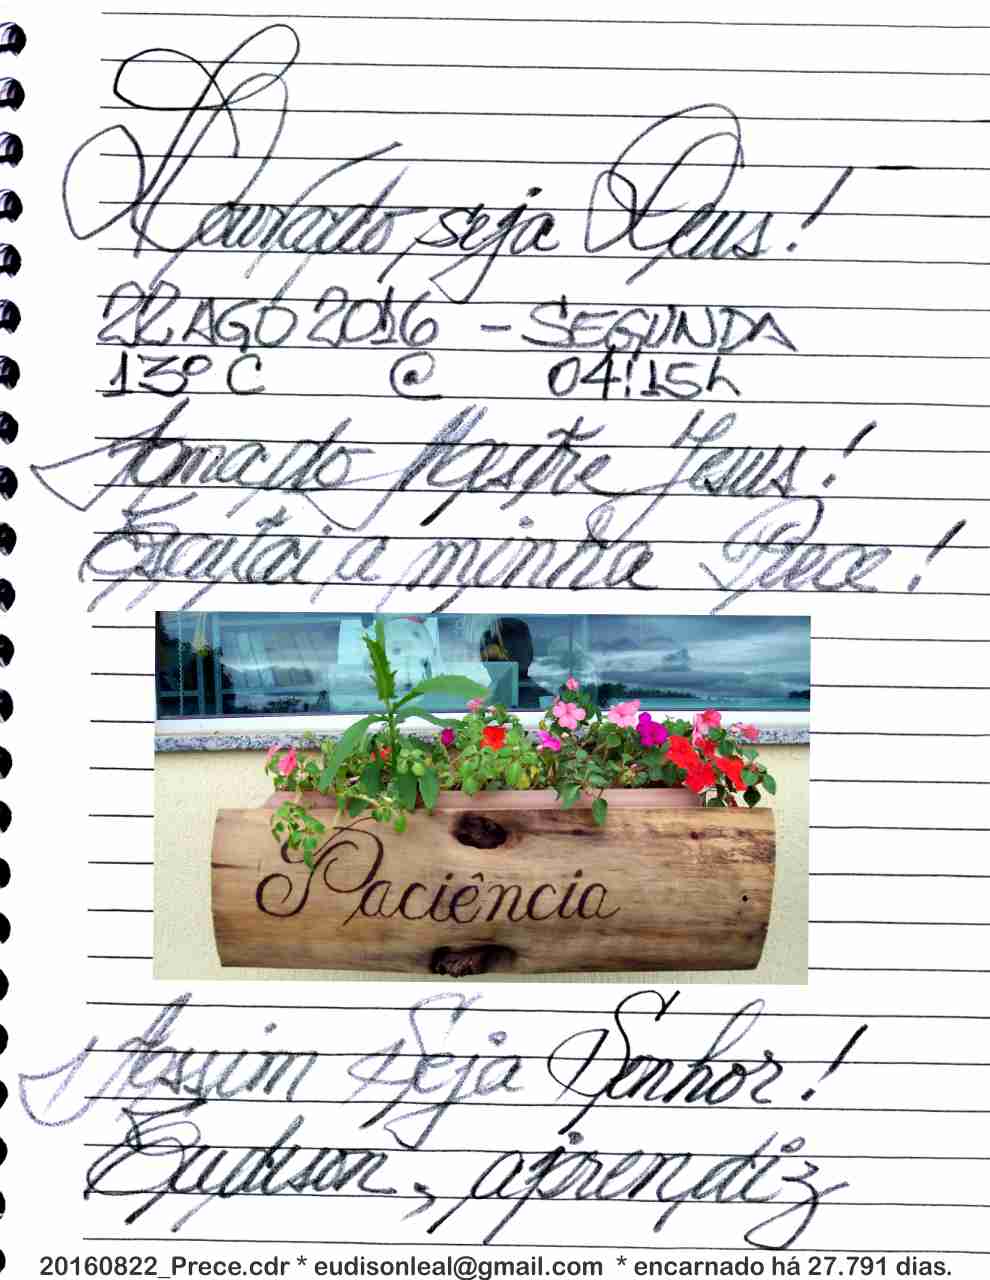 Louvado seja Deus!
22 AGO 2016 - SEGUNDA
13º C @ 04:15h
Amado Mestre Jesus!
Escutai a minha Prece!
Paciência
Assim Seja Senhor!
Eudison, aprendiz
20160822_Prece.cdr * eudisonleal@gmail.com * encarnado há 27.791 dias.